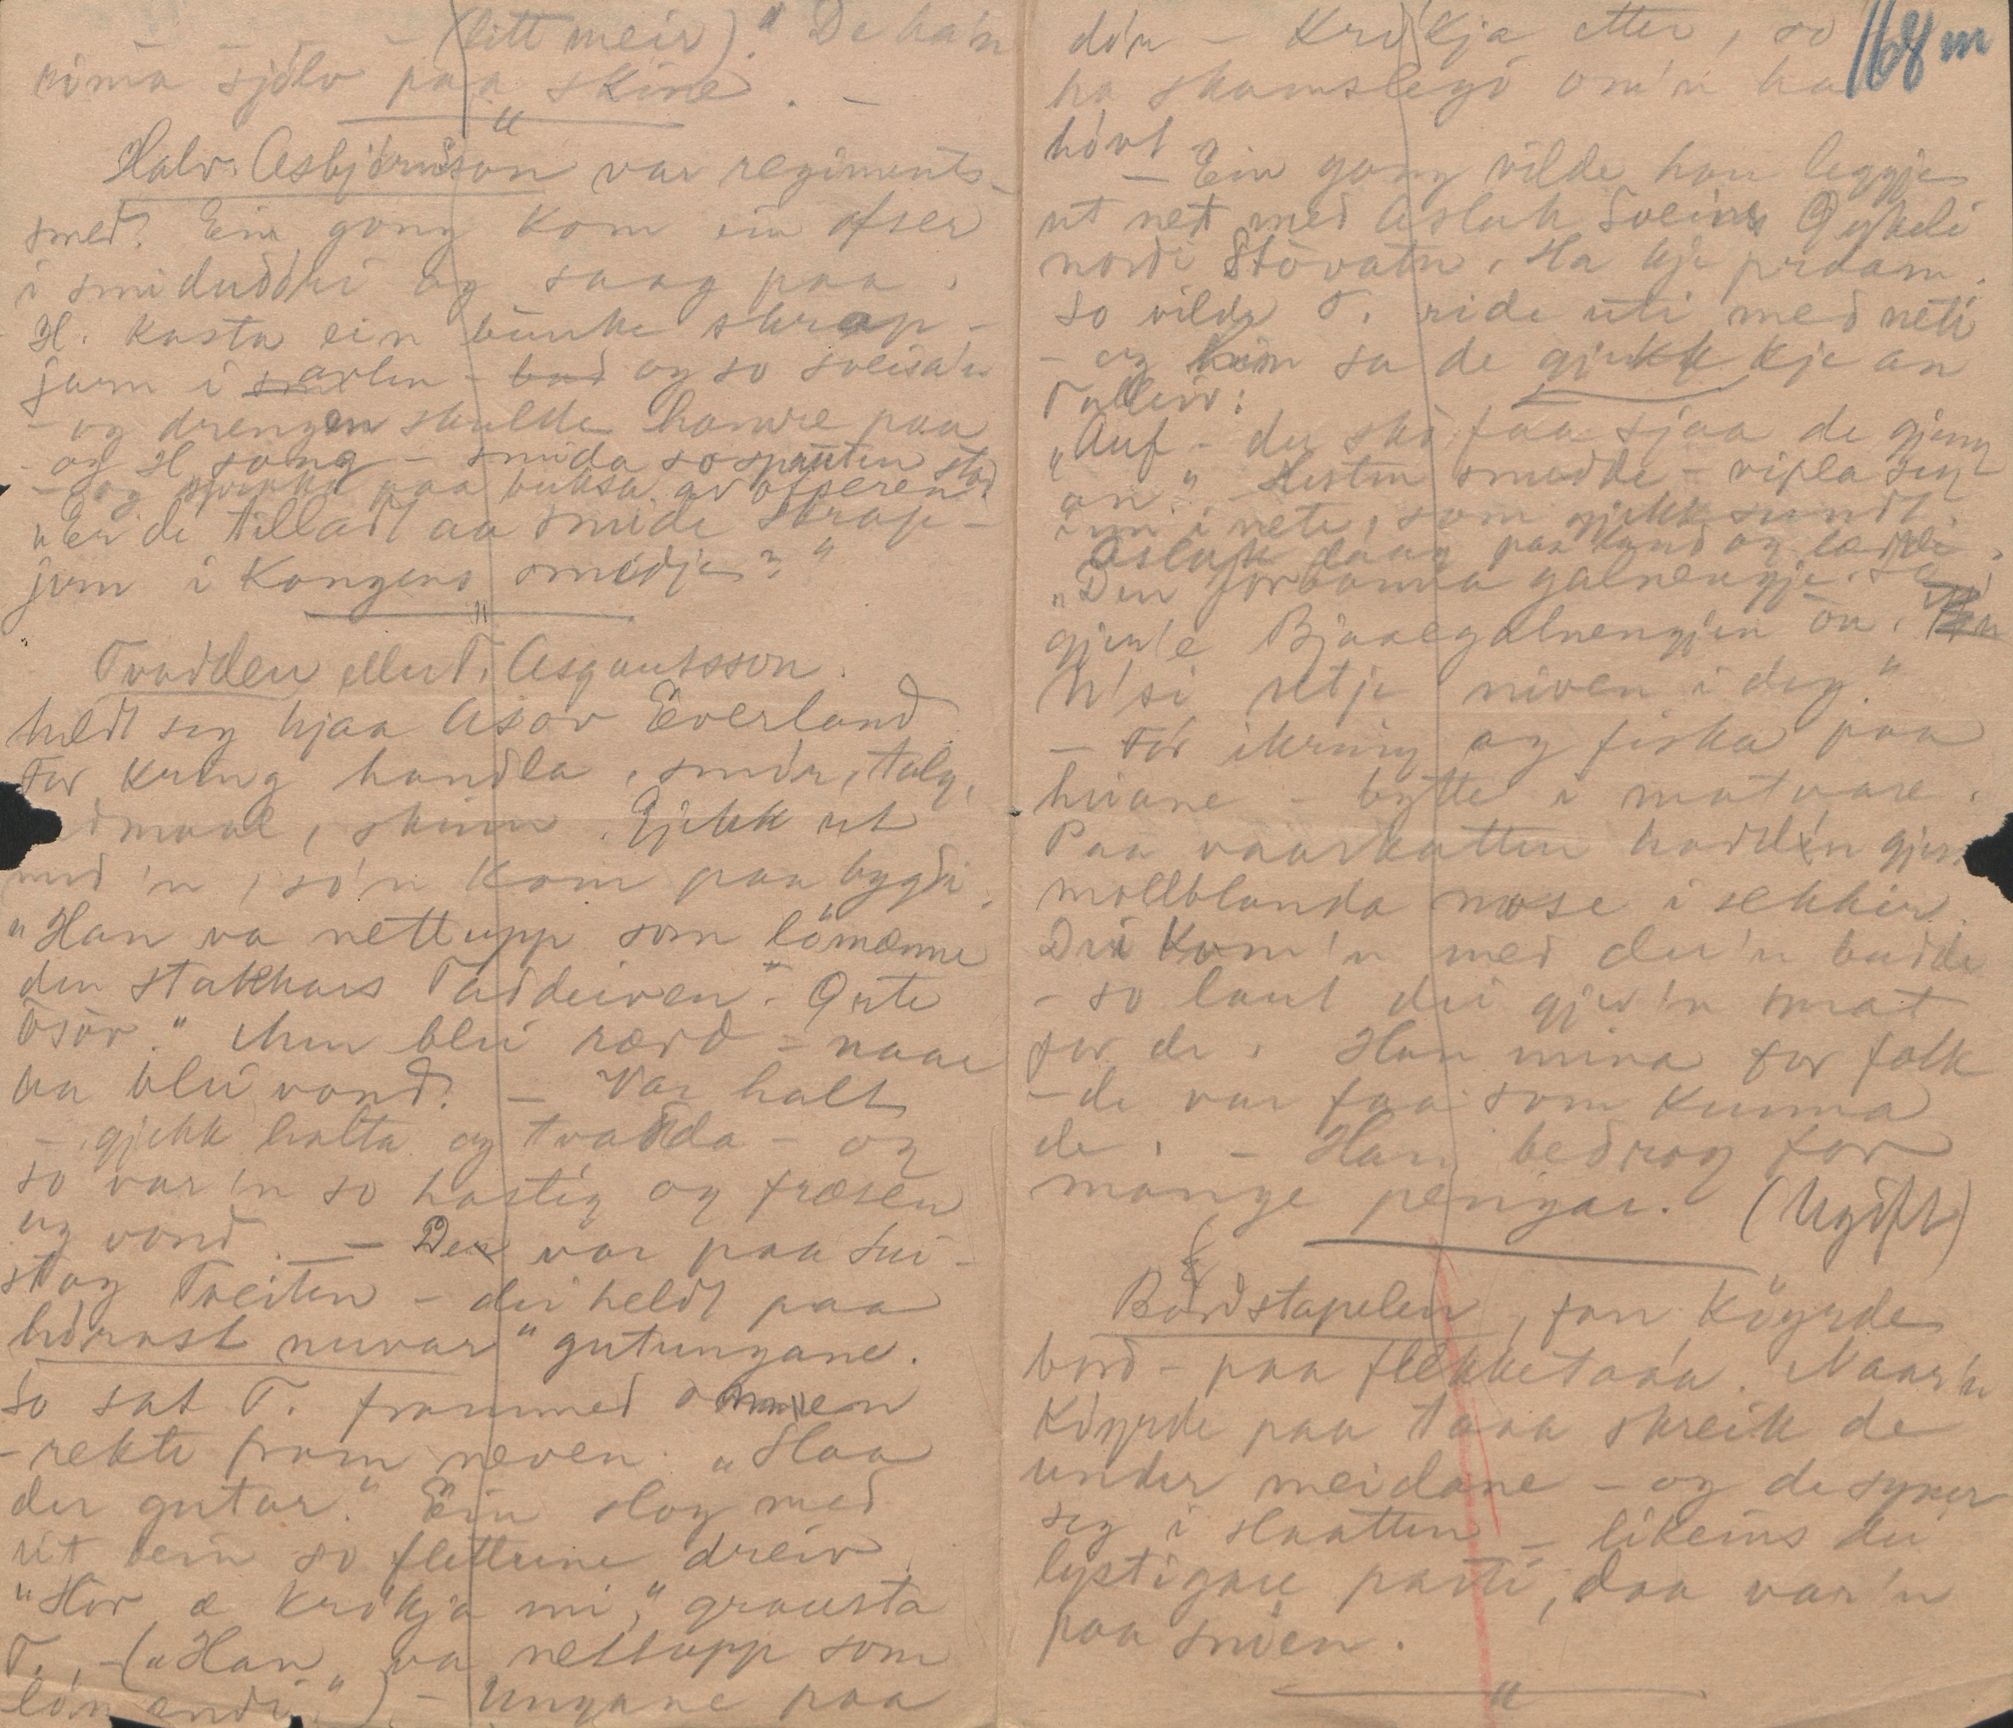 (litt meir)." De ha'n
sjölv paa skine. –
"
Halv. Asbjörnsson var regiments-
smed. Ein gong kom ein ofser
i smiduddri og saag paa.
H. kasta ein bunke skrap-
jarn i arlen – bad og so sveisa'n
– og drengen skulde hamre paa
– og H song – smida so sputten stod
– og paa buksa av ofseren.
"Er de tilladt aa smide skrap-
jarn i Kongens smidje?"
"
Tvadden eller T. Asgautsson.
heldt seg hjaa Asov Överland
For kring handla, smör, talg,
skinn. Gjekk ut
med 'n, so'n kom paa bygdi.
"Han va nettupp som lömænne
den stakkars Taddeiven." Gute
Osöv." Men blei rædd – naar
han blei vond. – Var halt
– gjekk halta og tvadda – og
so var 'n so hastig og fræsen
og vond. – Der var paa
stog Tveiten – dei heldt paa
hornast nuvar" gutungane.
So sat T. frammed omnen
– rekte fram neven. "Slaa
der gutar." Ein slog med
eit bein so flettune dreiv.
"Hor æ krökja mi," grausta
T., – ("Han va nettupp som
– Ungane paa
dön – Krökja etter, so
ha skamslegö om'n ha
hövt
– Ein gong vilde han leggje
ut net med Aslak Sveins
nordi Stövatn. Ha kje praam.
So vilde T. ride uti med neti
– og sa de gjekk kje an
Talleiv:
"Auf – du sko faa sjaa de gjeng
an." – Hesten snudde – vipla seg
inn i neti, som gjekk sundt.
Aslak laag paa land og lædde.
"Den forbanna galnengje.
Bjaaegalnengjen
neven i deg."
– For ikring og fiska paa
heiane – bytte i matvare.
Paa vaarkatten hadd'n gjer
mollblanda mose i sekkir.
Dei kom 'n med der'n budde
– so laut dei gjev'n mat
for de. Han mina for folk
– de var faa som kunna
de. – Han bedrog for
mange pengar. (Ugift)
Bordstapelen, han köyrde
bord – paa flekketaaa. Naar'n
köyrde paa taaa skreik de
under meidane – og de syner
seg i slaatten – likeins dei
lystigare parti, daa var'n
paa snöen.
"
168 m